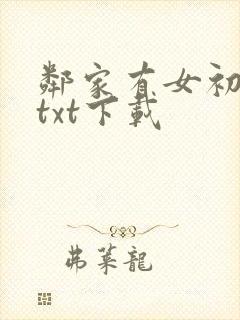 鄰家有女初
txt下載
弗萊龍